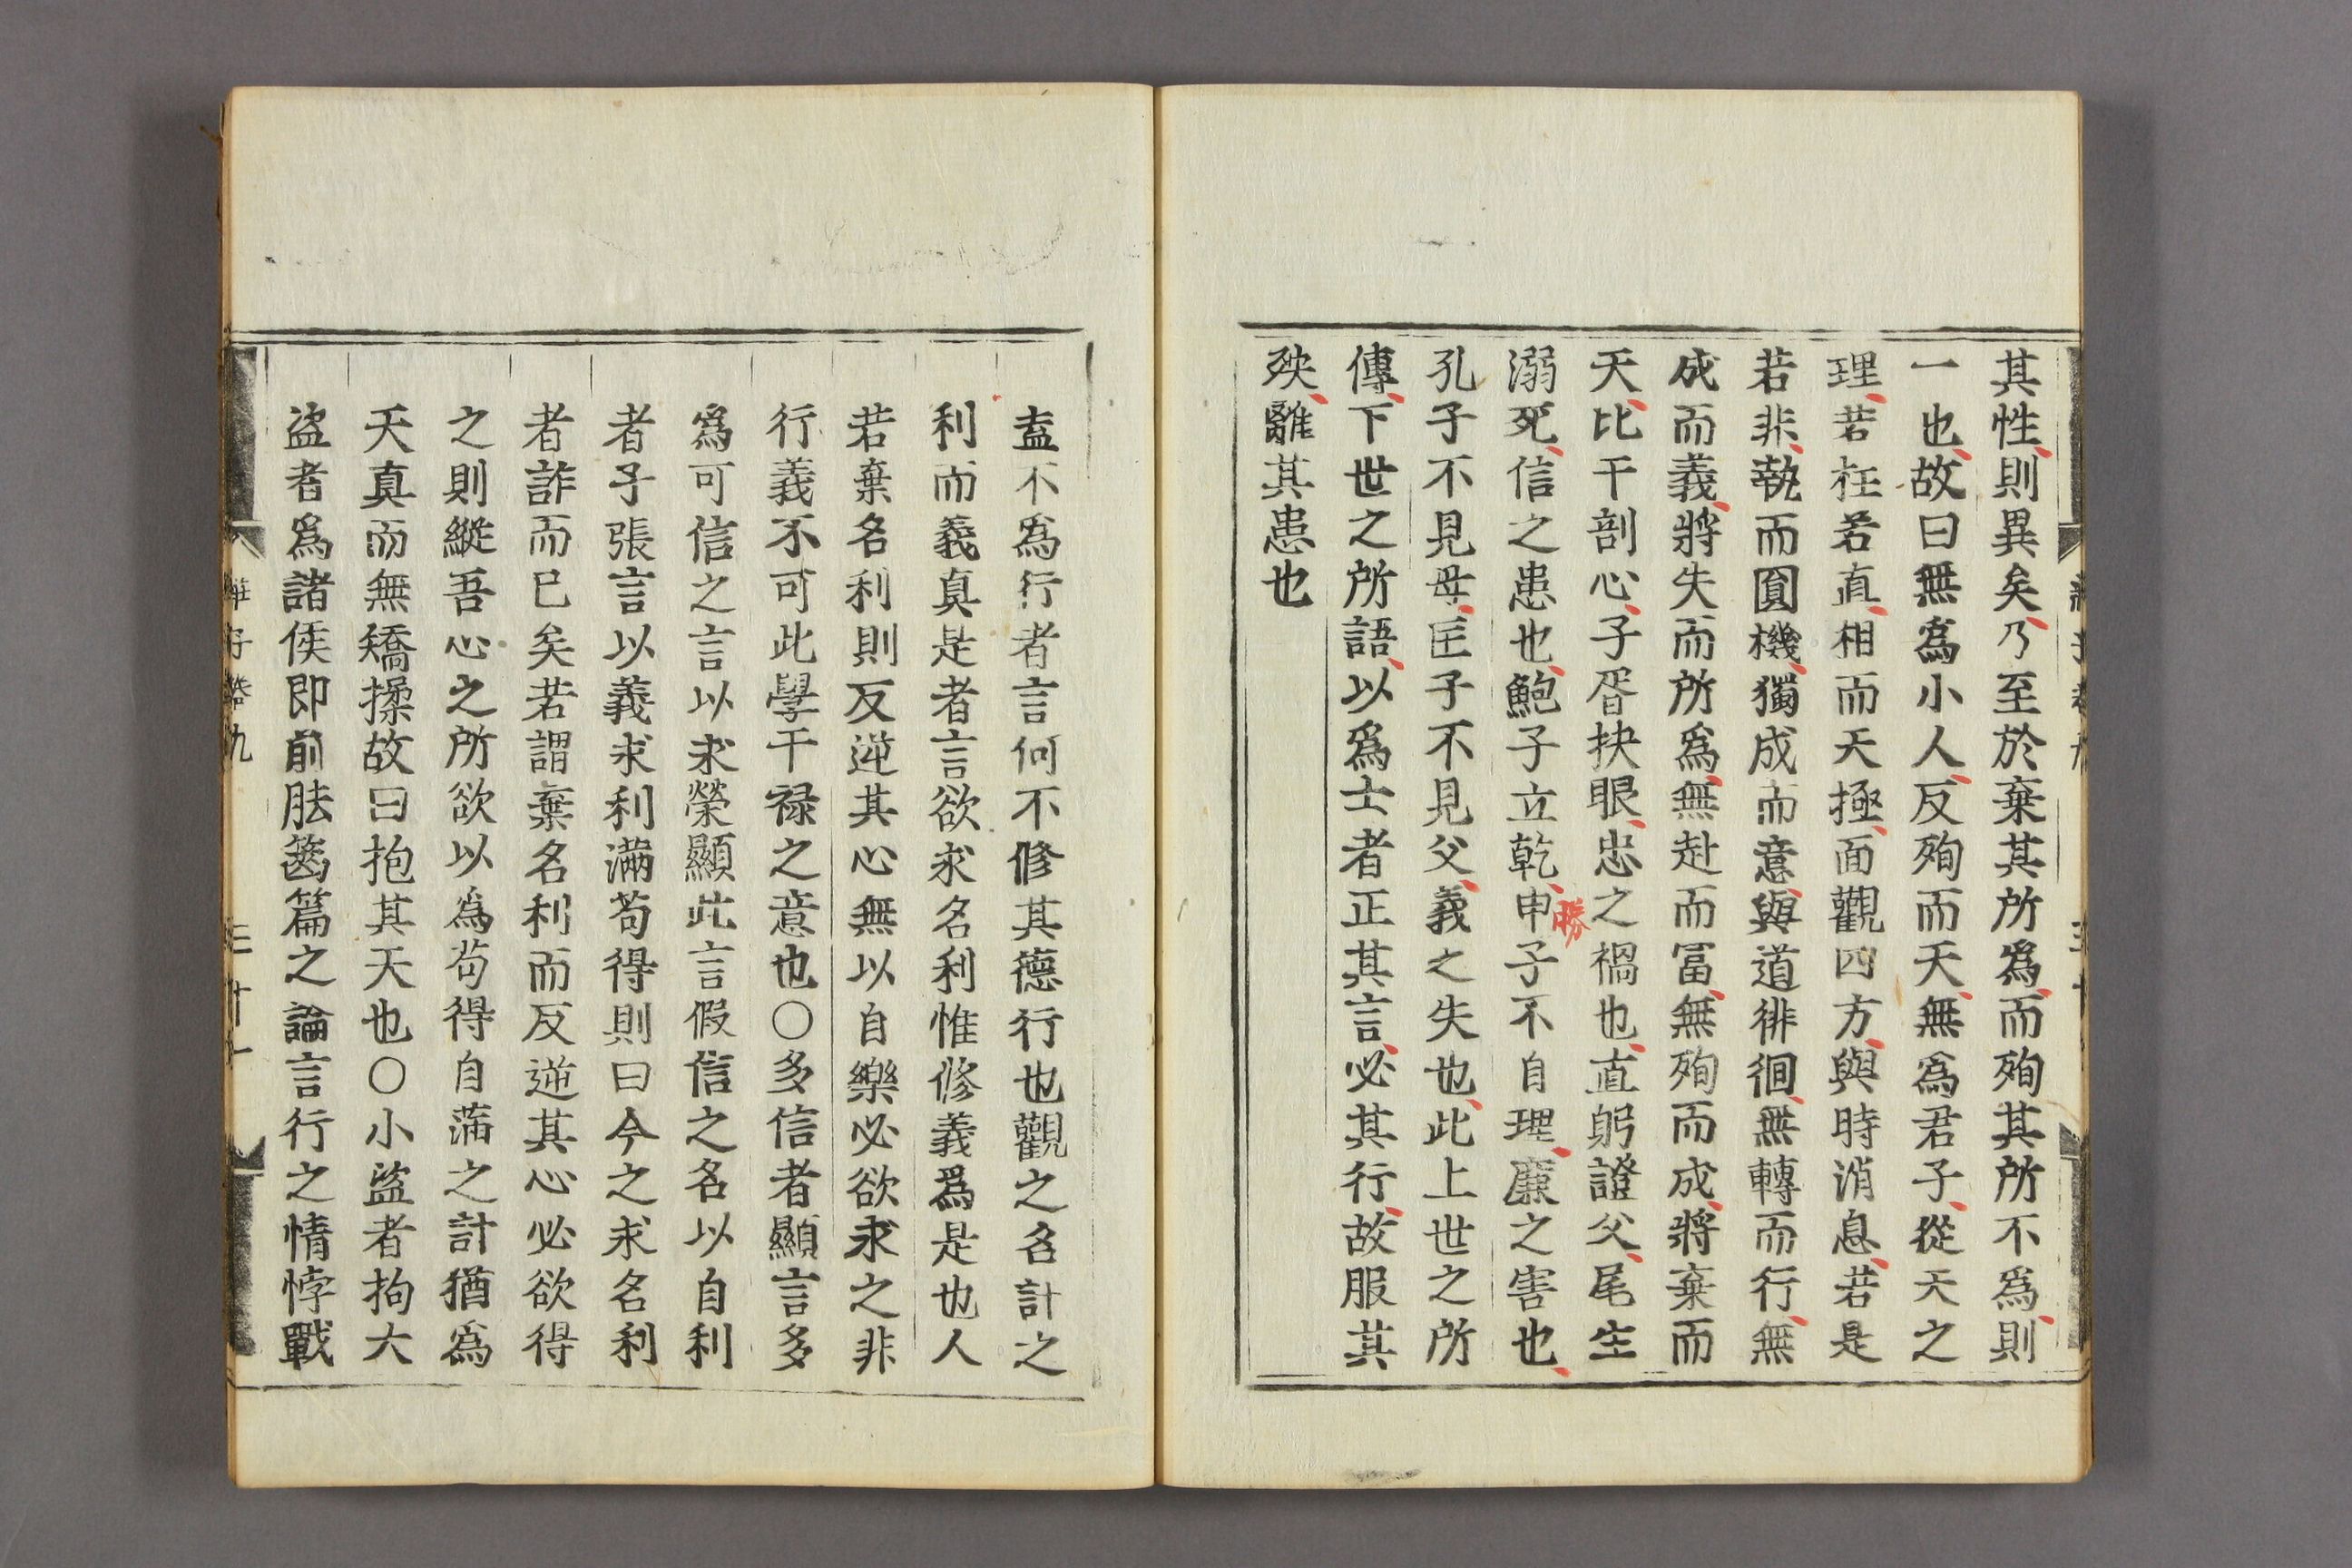 其性則異矣乃至於棄其所爲而殉其所不爲則
一也故曰無爲小人反殉而天無爲君子從天之
理若枉若直相而天極面觀四方與時消息若是
若非執而圓機獨成而意與道徘徊無轉而行無
成而義將失而所爲無赴而冨無殉而成將棄而
天比干剖心子胥抉眼忠之禍也直躬證父尾生
溺死信之患也鮑子立乾申子不自理廉之害也
勝
孔子不見母匡子不見父義之失也此上世之所
傳下世之所語以爲士者正其言必其行故服其
殃離其患也
盍不爲行者言何不修其德行也觀之名計之
利而義真是者言欲求名利惟修義爲是也人
若棄名利則反逆其心無以自樂必欲求之非
行義不可此學干禄之意也○多信者顯言多
爲可信之言以求榮顯此言假信之名以自利
者子張言以義求利滿苟得則曰今之求名利
者詐而已矣若謂棄名利而反逆其心必欲得
之則縱吾心之所欲以爲苟得自滿之計猶爲
天真而無矯揉故曰抱其天也○小盜者拘大
盜者爲諸侯即前胠篋篇之論言行之情悖戰
三十一